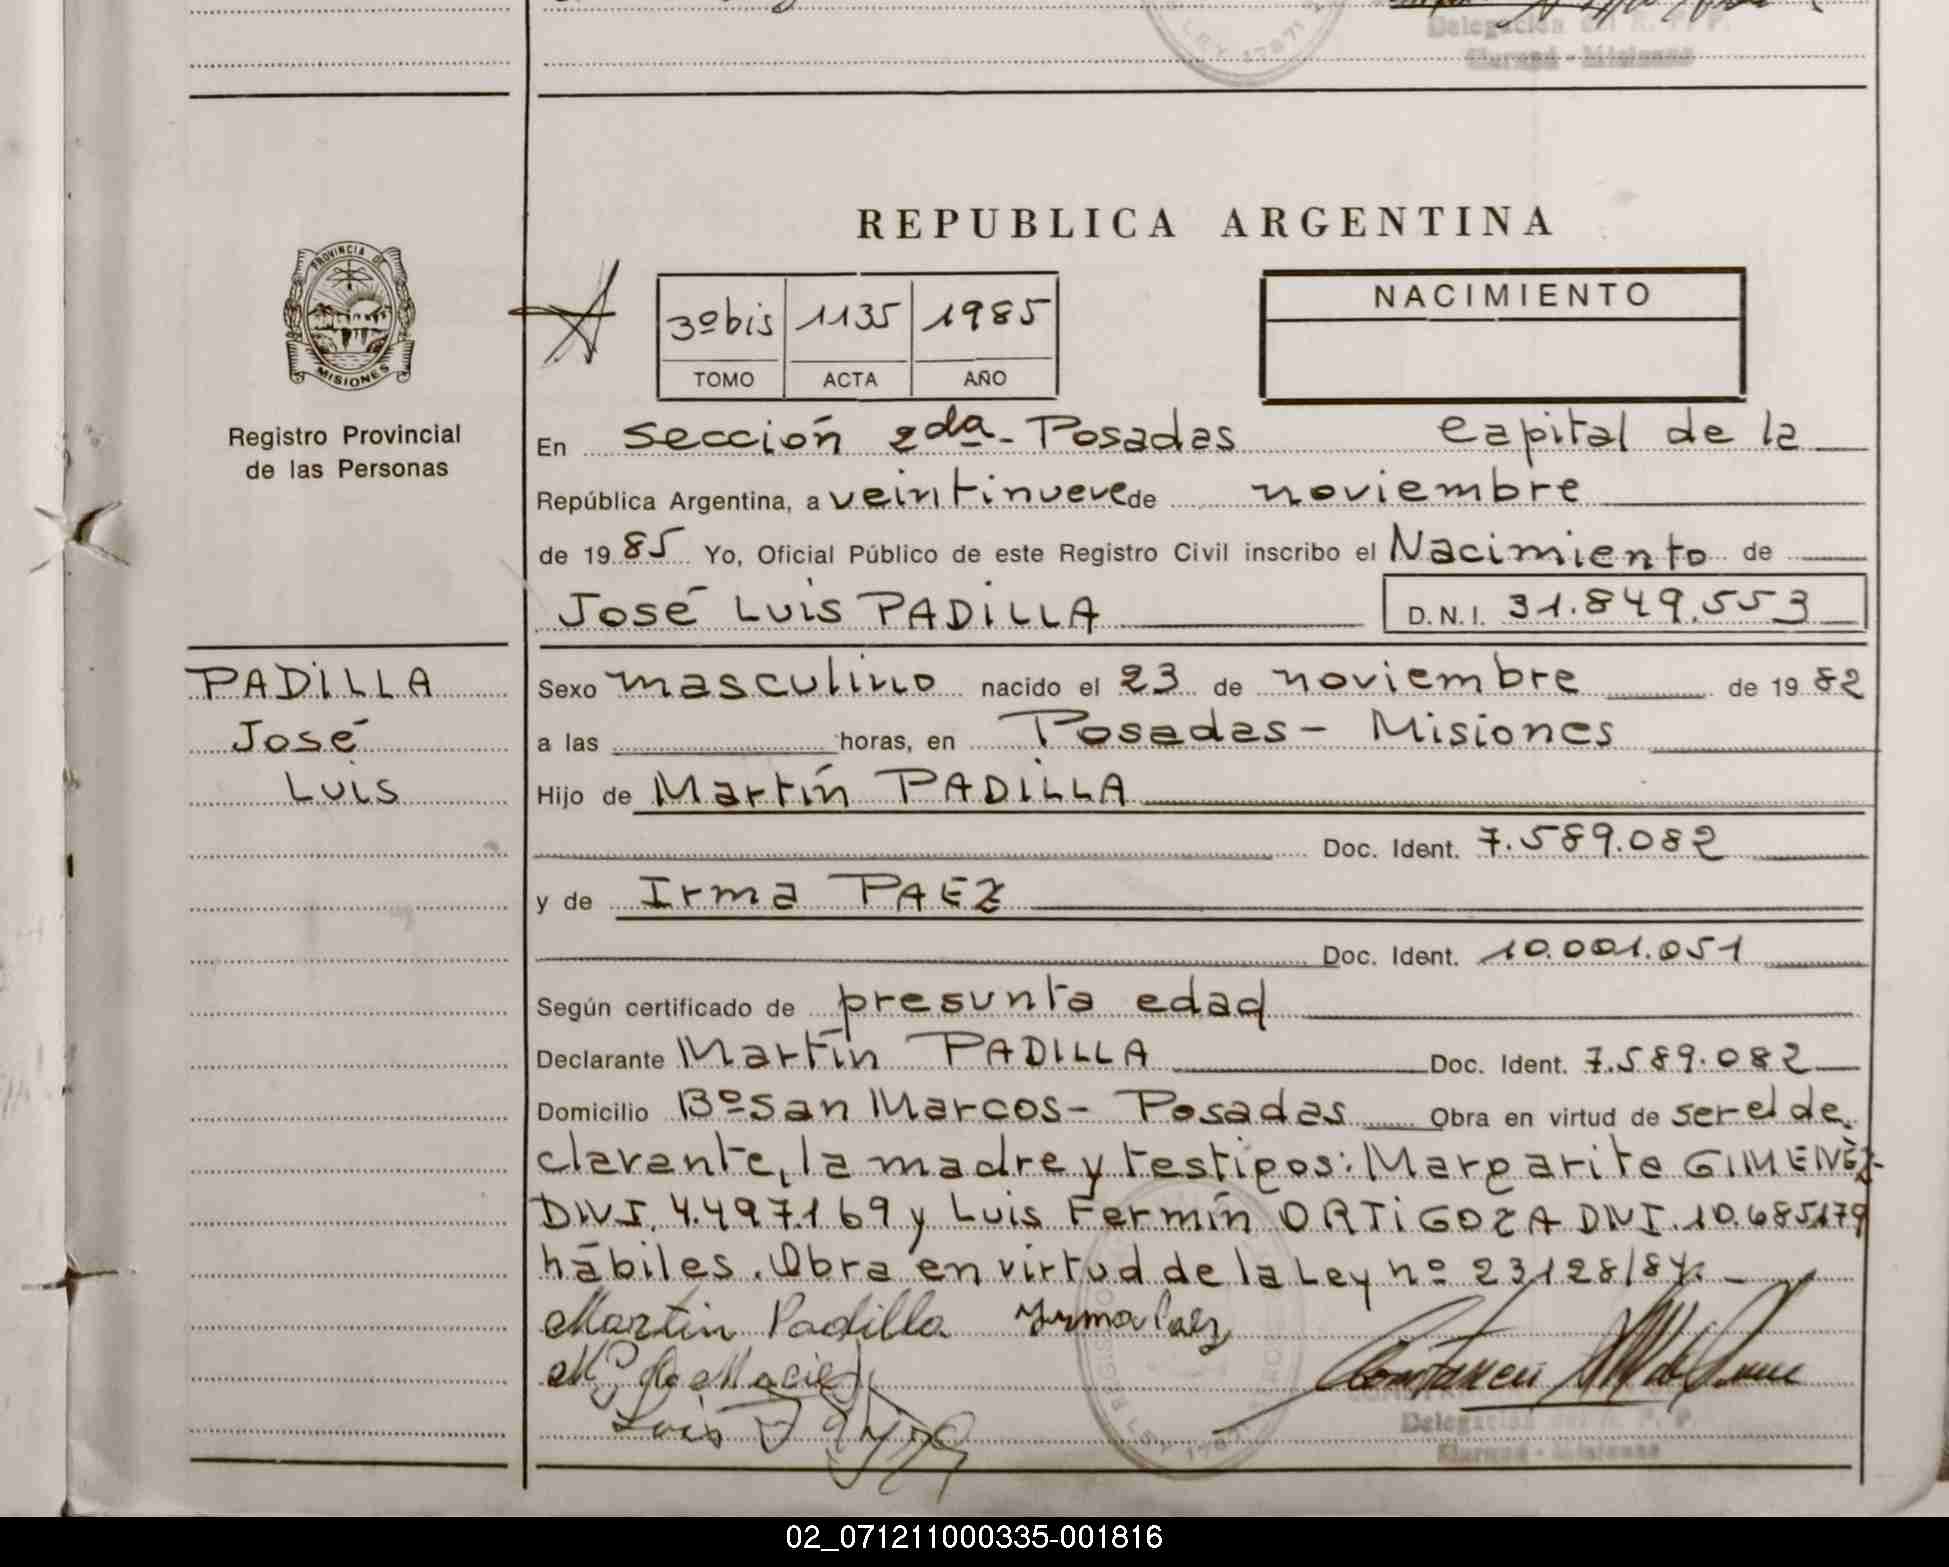 LEY 17671
Delegación del R. P. P.
Garupá - Misiones
REPUBLICA ARGENTINA
PROVINCIA DE
MISIONES
Registro Provincial
de las Personas
3º bis 1135 1985
TOMO ACTA AÑO
NACIMIENTO
En Sección 2da - Posadas Capital de la
República Argentina, a veintinueve de noviembre
de 19 85 Yo, Oficial Público de este Registro Civil inscribo el Nacimiento de
José Luis PADILLA D.N.I. 31.849.553
PADILLA
José
Luis
Sexo masculino nacido el 23 de noviembre de 19 82
a las horas, en Posadas - Misiones
Hijo de Martín PADILLA
Doc. Ident. 7.589.082
y de Irma PAEZ
Doc. Ident. 10.001.051
Según certificado de presunta edad
Declarante Martín PADILLA Doc. Ident. 7.589.082
Domicilio Bº San Marcos - Posadas Obra en virtud de ser el de
clarante, la madre y testigos: Margarita GIMENEZ
DNI. 4.497.169 y Luis Fermín ORTIGOZA DNI. 10.685179
hábiles. Obra en virtud de la Ley nº 23128/84.
Martin Padilla Irma Paez
Luis
Delegación del R. P. P.
Garupá - Misiones
02_071211000335-001816